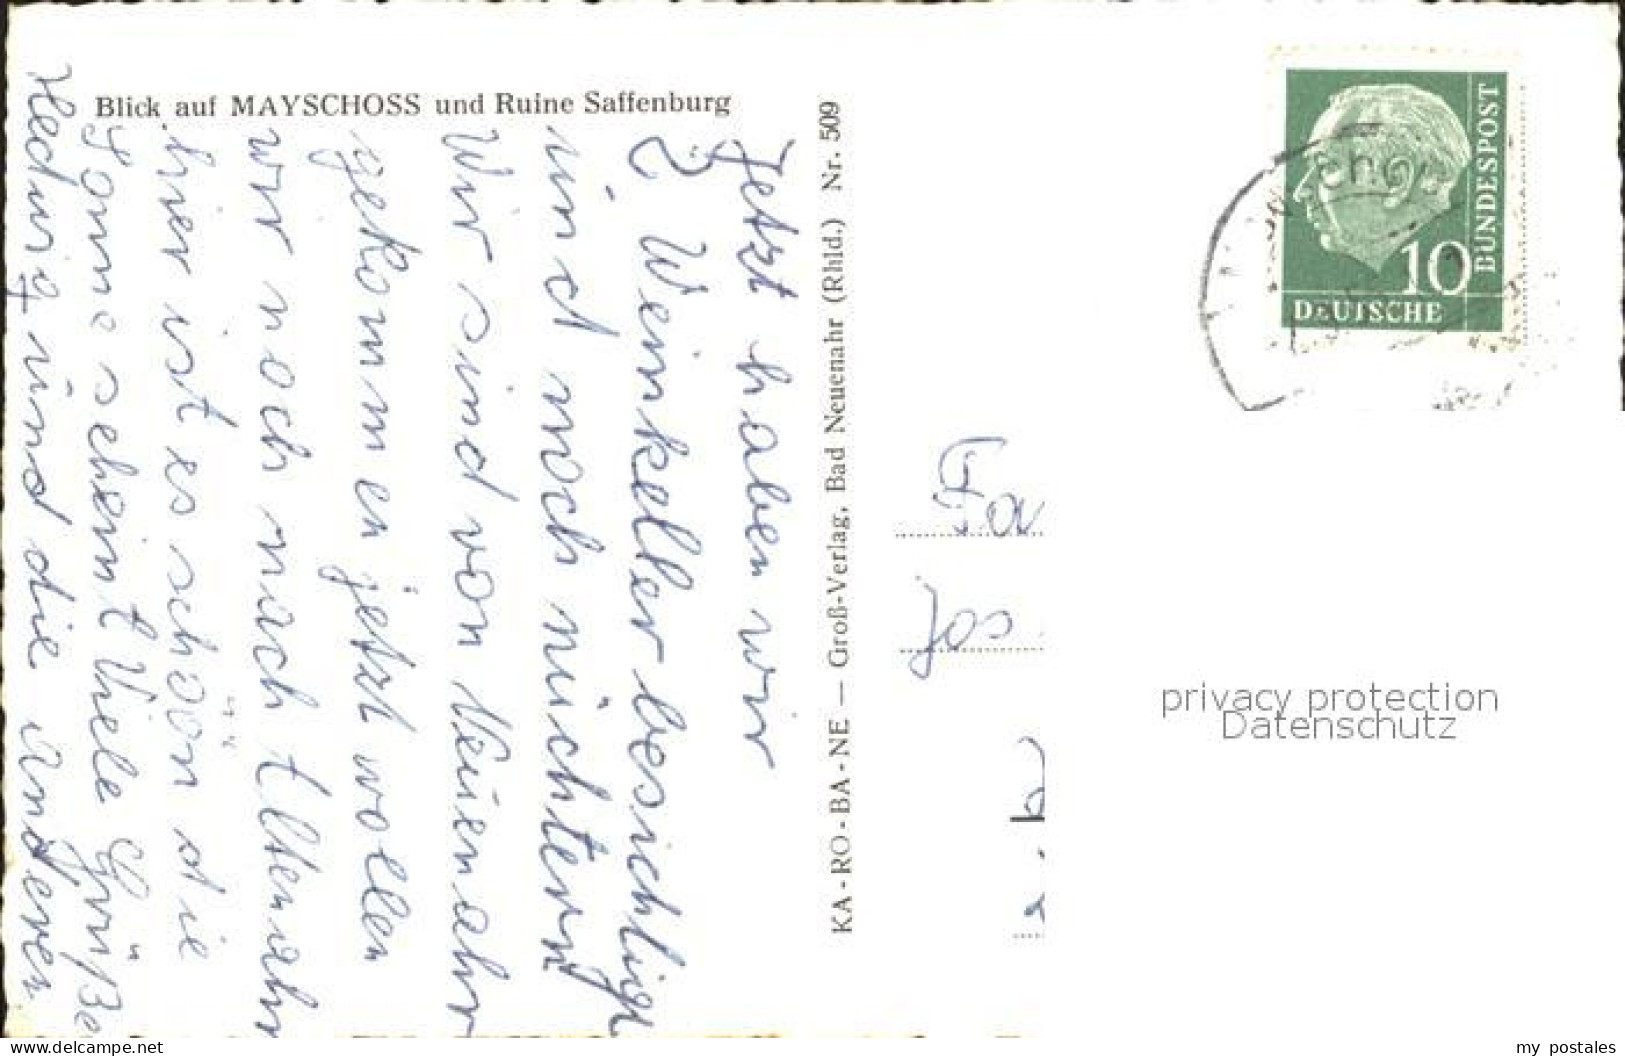 Blick auf MAYSCHOSS und Ruine Saffenburg
Jetzt haben wir
2 Weinkeller besichtigt
und noch nüchtern
Wir sind von Neuenahr
gekommen jetzt wollen
wir noch nach Altenahr
hier ist es schön die
Sonne scheint Viele Grüße
Hedwig und die Anderen
KA-RO-BA-NE — Groß-Verlag, Bad Neuenahr (Rhld.) Nr. 509
DEUTSCHE
BUNDESPOST
10
Fa
Jos
privacy protection
Datenschutz
www.ansichtskartenversand.com
my postales